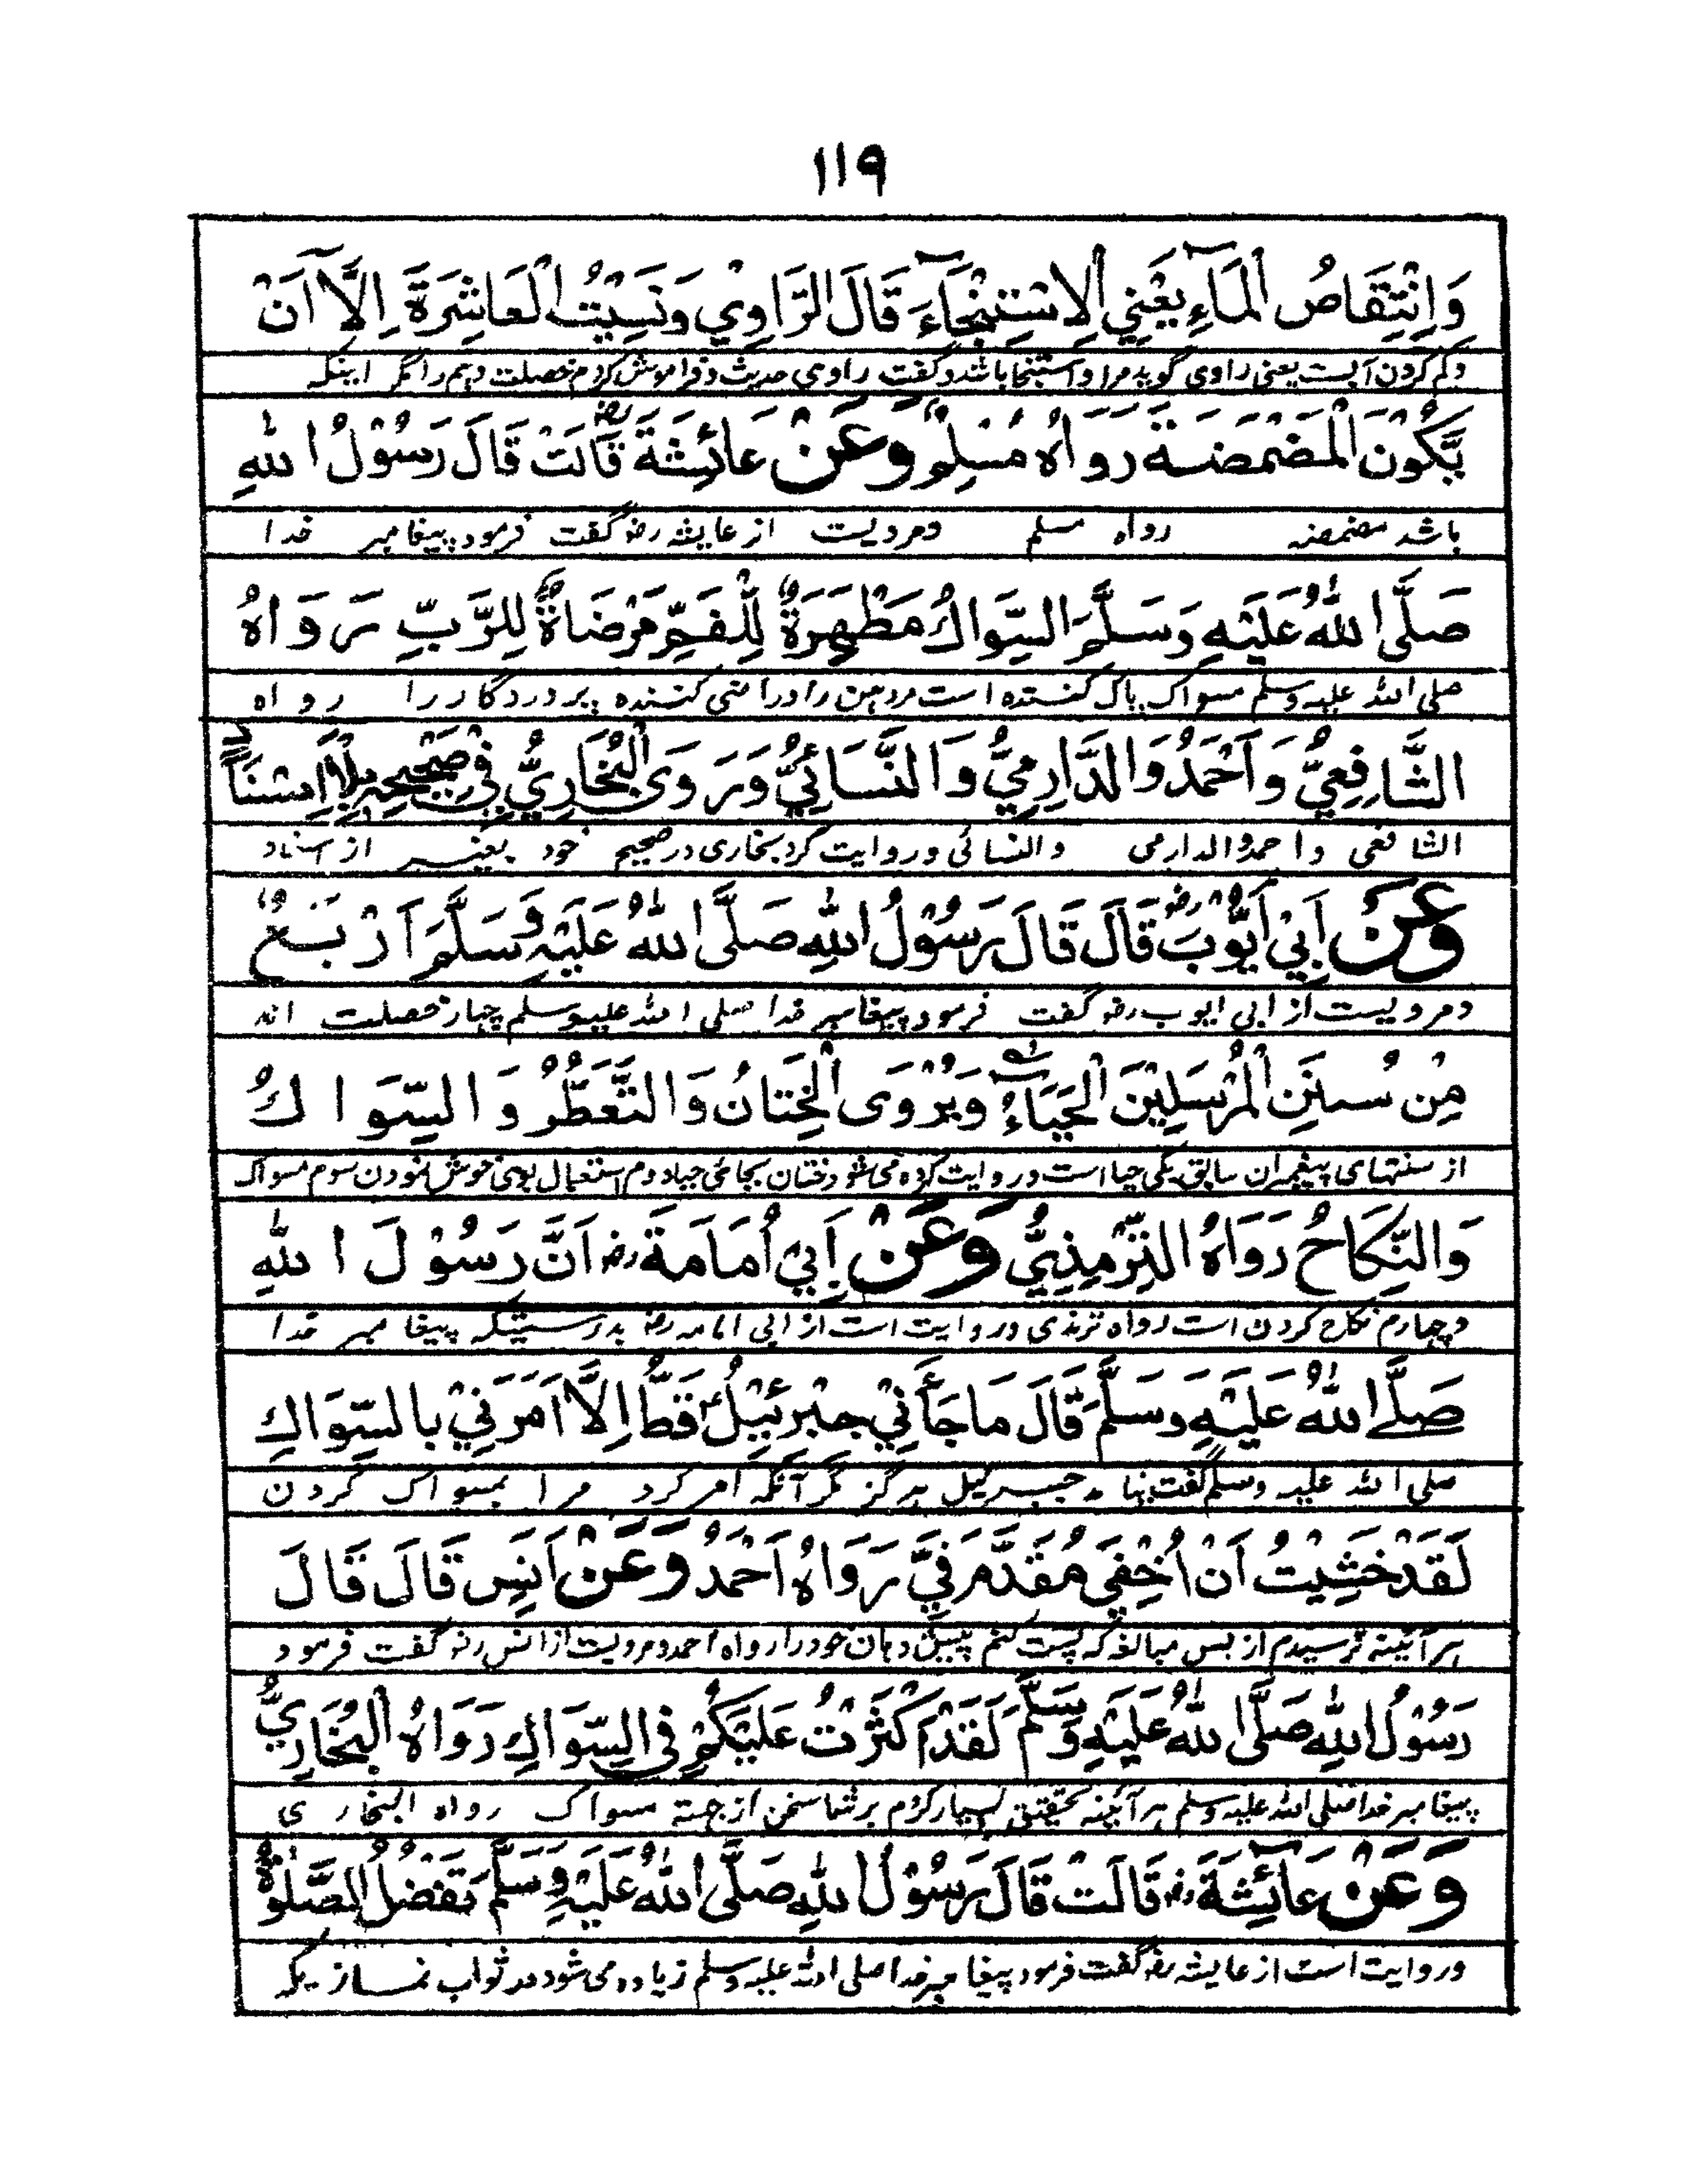 ۱۱۹
وَاِنْتِقَاصُ الْمَآءِ يَعْنِي الْاِسْتِنْجَآءَ قَالَ الرَّاوِيْ وَنَسِيْتُ الْعَاشِرَةَ اِلَّآ اَنْ
وکم کردن آبست یعنی راوی گوید مراد استنجا باشد و گفت راوی حدیث و فراموش کردم خصلت دہم را مگر اینکہ
يَّكُوْنَ الْمَضْمَضَةَ رَوَاهُ مُسْلِمٌ وَعَنْ عَائِشَةَ رض قَالَتْ قَالَ رَسُوْلُ اللهِ
باشد مضمضہ رواہ مسلم ومرویست از عایشہ رضہ گفت فرمود پیغامبر خدا
صَلَّى اللهُ عَلَيْهِ وَسَلَّمَ السِّوَاكُ مَطْهَرَةٌ لِّلْفَمِّ مَرْضَاةٌ لِلرَّبِّ رَوَاهُ
صلی اللہ علیہ وسلم مسواک پاک کنندہ است مر دہن را و راضی کنندہ پروردگار را رواہ
الشَّافِعِيُّ وَاَحْمَدُ وَالدَّارِمِيُّ وَالنَّسَائِيُّ وَرَوَى الْبُخَارِيُّ فِيْ صَحِيْحِهٖ بِلَا اِسْنَادٍ
الشافعی واحمد والدارمی والنسائی وروایت کرد بخاری در صحیح خود بغیر از اسناد
وَعَنْ اَبِيْ اَيُّوْبَ رض قَالَ قَالَ رَسُوْلُ اللهِ صَلَّى اللهُ عَلَيْهِ وَسَلَّمَ اَرْبَعٌ
ومرویست از ابی ایوب رضہ گفت فرمود پیغامبر خدا صلی اللہ علیہ وسلم چہار خصلت اند
مِنْ سُنَنِ الْمُرْسَلِيْنَ الْحَيَاءُ وَيُرْوَى الْخِتَانُ وَالتَّعَطُّرُ وَالسِّوَاكُ
از سنتہای پیغمبران سابق یکی حیا است وروایت کردہ می شود ختان بجائی حیا دوم استعمال بوی خوش نمودن سوم مسواک
وَالنِّكَاحُ رَوَاهُ التِّرْمِذِيُّ وَعَنْ اَبِيْ اُمَامَةَ رض اَنَّ رَسُوْلَ اللهِ
وچہارم نکاح کردن است رواہ ترمذی وروایت است از ابی امامہ رضہ بدرستیکہ پیغامبر خدا
صَلَّى اللهُ عَلَيْهِ وَسَلَّمَ قَالَ مَا جَآءَنِيْ جِبْرَئِيْلُ قَطُّ اِلَّا اَمَرَنِيْ بِالسِّوَاكِ
صلی اللہ علیہ وسلم گفت جبرئیل ہرگز مگر آنکہ امر کرد مرا بمسواک کردن
لَقَدْ خَشِيْتُ اَنْ اُحْفِيَ مُقَدَّمَ فِيَّ رَوَاهُ اَحْمَدُ وَعَنْ اَنَسٍ قَالَ قَالَ
ہرآئینہ ترسیدم از بس مبالغہ کہ پست کنم پیش دہان خود را رواہ احمد ومرویست از انس رضہ گفت فرمود
رَسُوْلُ اللهِ صَلَّى اللهُ عَلَيْهِ وَسَلَّمَ لَقَدْ اَكْثَرْتُ عَلَيْكُمْ فِي السِّوَاكِ رَوَاهُ الْبُخَارِيُّ
پیغامبر خدا صلی اللہ علیہ وسلم ہرآئینہ بتحقیق بسیار کردم بر شما سخن از جہتہ مسواک رواہ البخاری
وَعَنْ عَائِشَةَ رض قَالَتْ قَالَ رَسُوْلُ اللهِ صَلَّى اللهُ عَلَيْهِ وَسَلَّمَ تَفْضُلُ الصَّلٰوةُ
وروایت است از عایشہ رضہ گفت فرمود پیغامبر خدا صلی اللہ علیہ وسلم زیادہ می شود در ثواب نماز یکہ